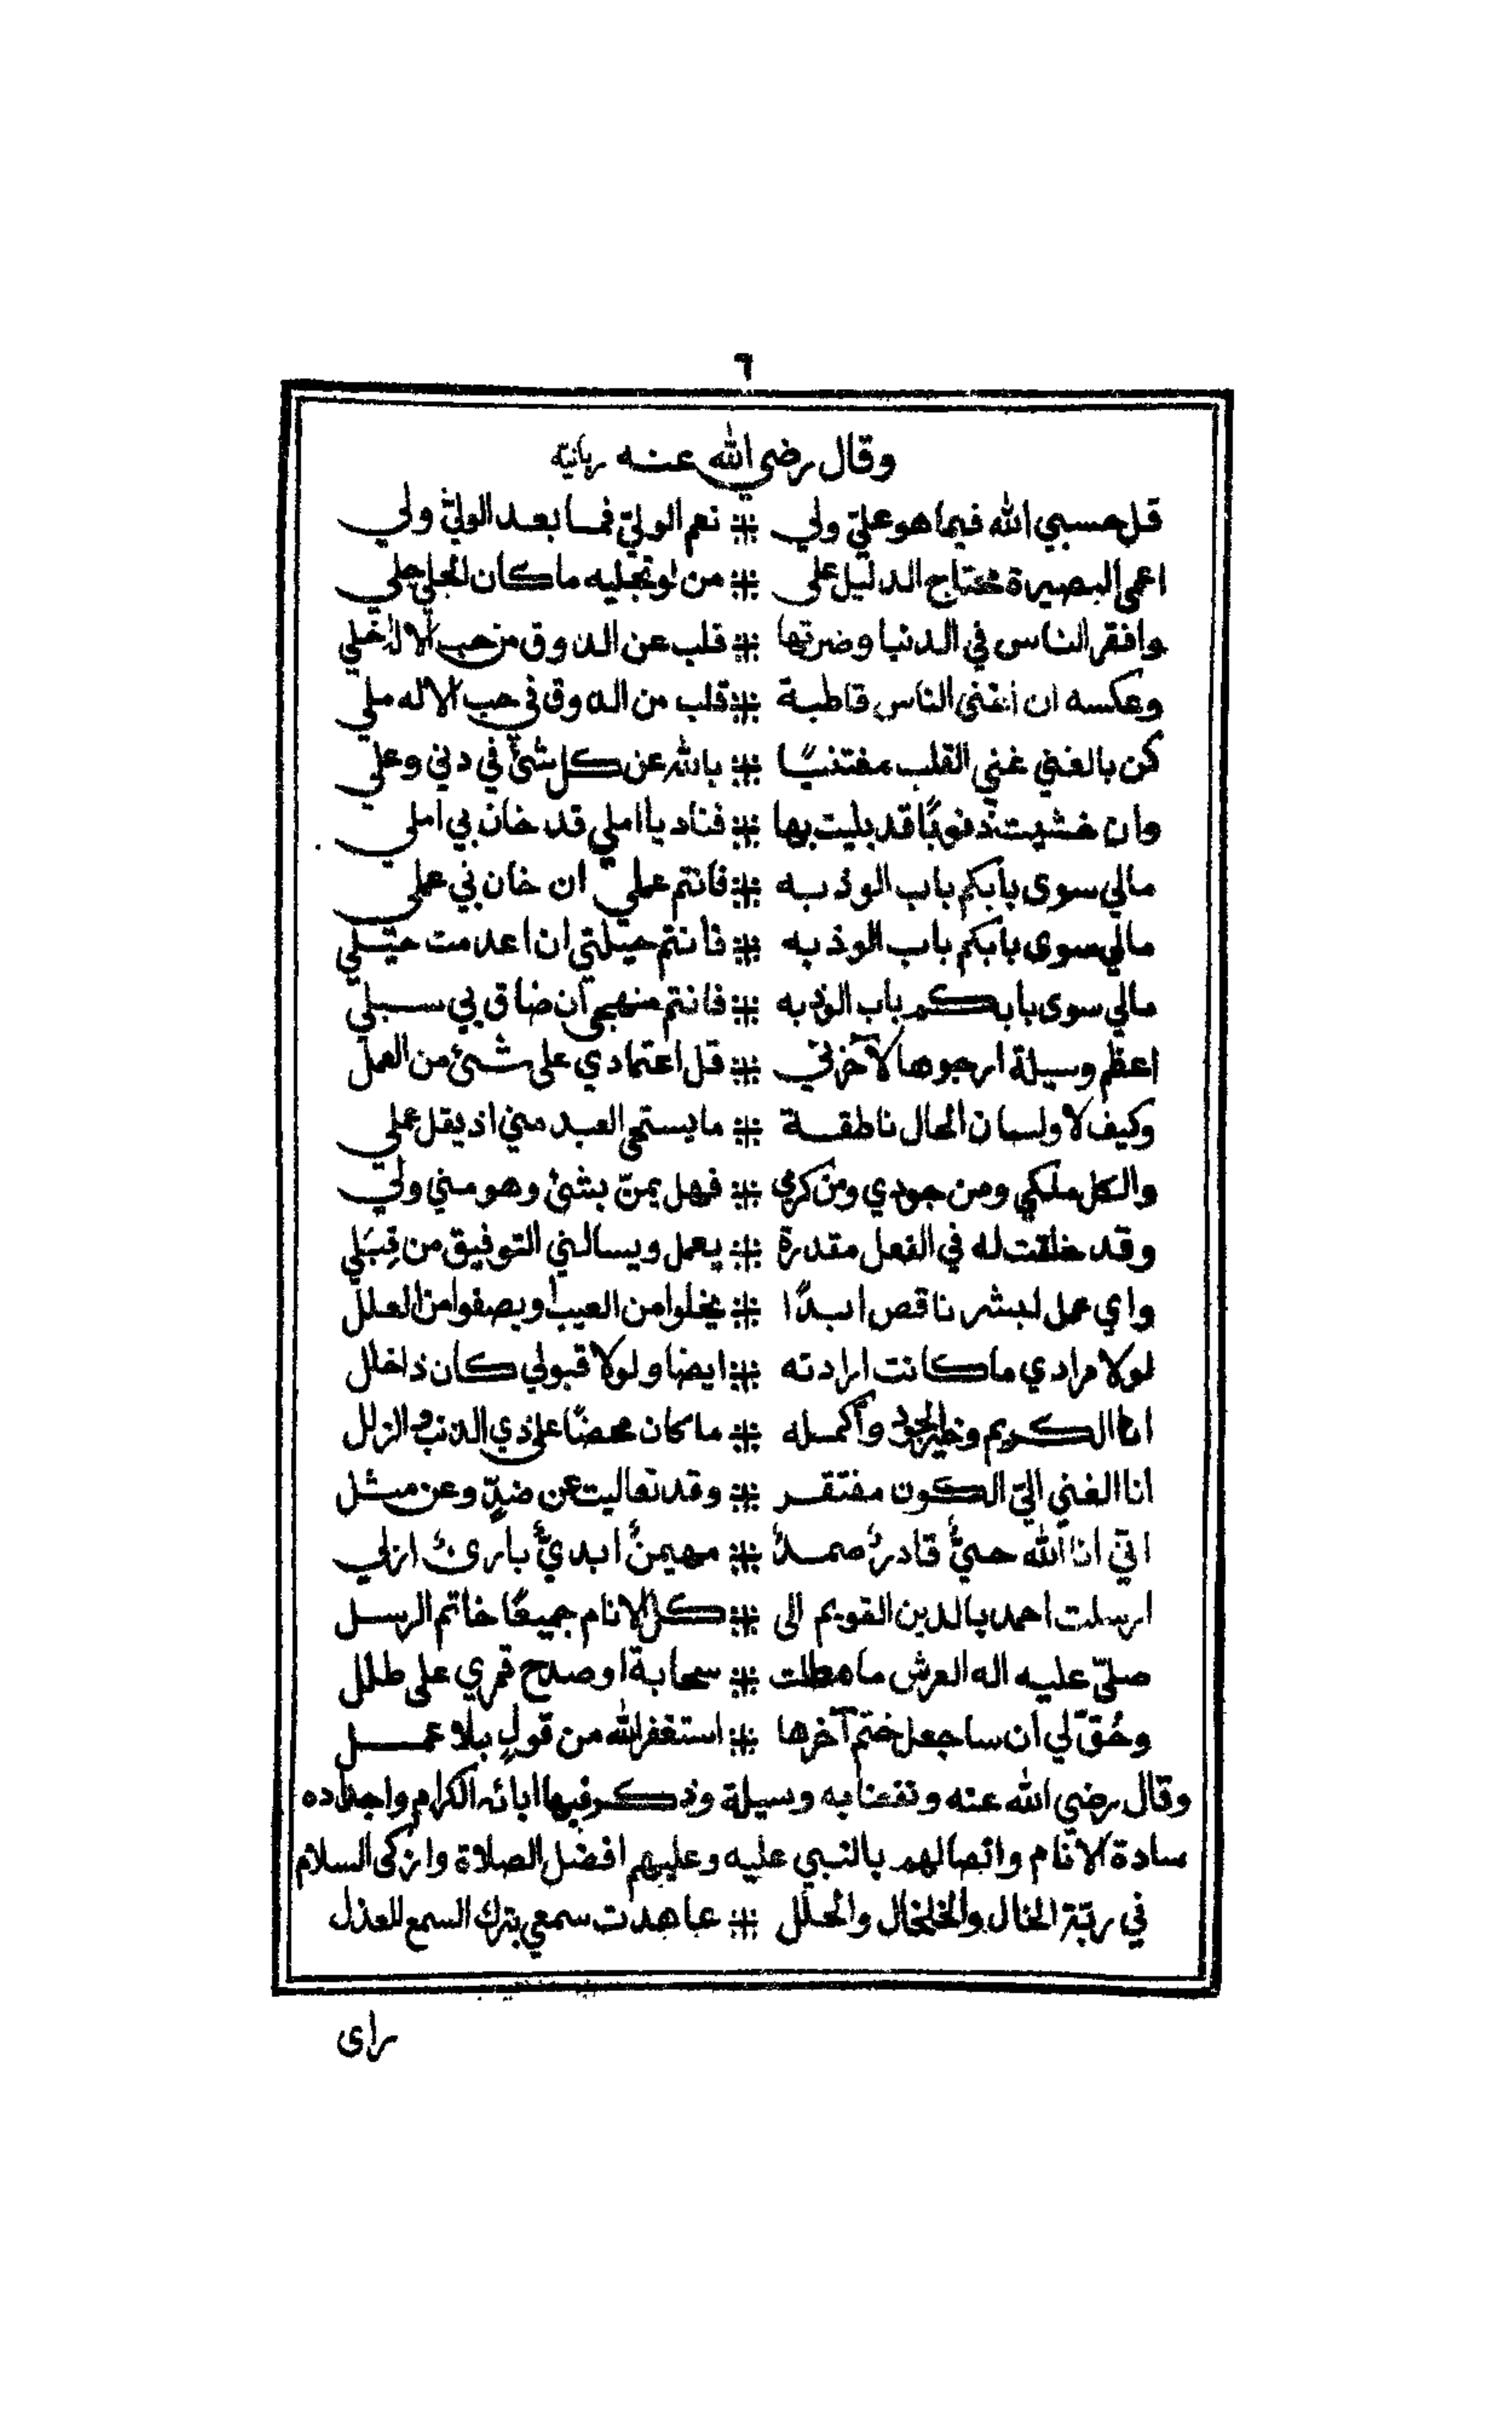 ٦
وقال رضي الله عنه ربانية
قل حسبي الله فيما هو عليّ ولي ⁜ نعم الوليّ فما بعد الوليّ ولي
اعمى البصيرة محتاج الدليل على ⁜ من لو تجليه ما كان الجلي جلي
وافقر الناس في الدنيا وضرتها ⁜ قلب عن الذوق من حب الاله خلي
وعكسه ان اغنى الناس قاطبة ⁜ قلب من الذوق في حب الاله ملي
كن بالغني غني القلب مغتنيًا ⁜ بالله عن كل شئ في دني وعلي
وان خشيت ذنوبًا قد بليت بها ⁜ فناد يا املي قد خان بي املي
مالي سوى بابكم باب الوذ به ⁜ فانتم عملي ان خان بي عملي
مالي سوى بابكم باب الوذ به ⁜ فانتم حيلتي ان اعدمت حيلي
مالي سوى بابكم باب الوذ به ⁜ فانتم منهجي ان ضاق بي سبلي
اعظم وسيلة ارجوها لآخرتي ⁜ قل اعتمادي على شئ من العمل
وكيف لا ولسان الحال ناطقة ⁜ ما يستحي العبد مني اذ يقل عملي
والكل ملكي ومن جودي ومن كرمي ⁜ فهل يمنّ بشئ وهو مني ولي
وقد خلقت له في الفعل مقدرة ⁜ يعمل ويسالني التوفيق من قِبَلي
واي عمل لبشر ناقص ابدًا ⁜ يخلوا من العيب او يصفوا من العلل
لولا مرادي ما كانت ارادته ⁜ ايضا ولولا قبولي كان ذا خلل
انا الكريم وخير الجود واكمله ⁜ ما كان محضًا على ذي الذنب والزلل
انا الغني اليّ الكون مفتقر ⁜ وقد تعاليت عن ضدٍّ وعن مثل
اني انا الله حيٌّ قادرٌ صمدٌ ⁜ مهيمنٌ ابديٌّ بارئٌ ازلي
ارسلت احمد بالدين القويم الى ⁜ كل الانام جميعًا خاتم الرسل
صلّى عليه اله العرش ما هطلت ⁜ سحابة او صدح قمري على طلل
وحُقّ لي ان ساجعل ختم آخرها ⁜ استغفر الله من قولٍ بلا عمل
وقال رضي الله عنه ونفعنا به وسيلة وذكر فيها ابائه الكرام واجداده
سادة الانام واتصالهم بالنبي عليه وعليهم افضل الصلاة وازكى السلام
في ربّة الخال والخلخال والحلل ⁜ عاهدت سمعي بترك السمع للعذل
راى